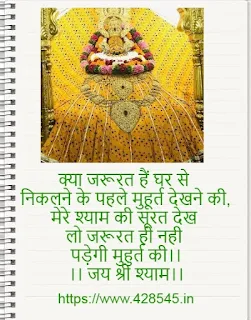 क्या जरूरत हैं घर से
निकलने के पहले मुहूर्त देखने की,
मेरे श्याम की सूरत देख
लो जरूरत ही नही
पड़ेगी मुहूर्त की।।
।। जय श्री श्याम।।
https://www.428545.in